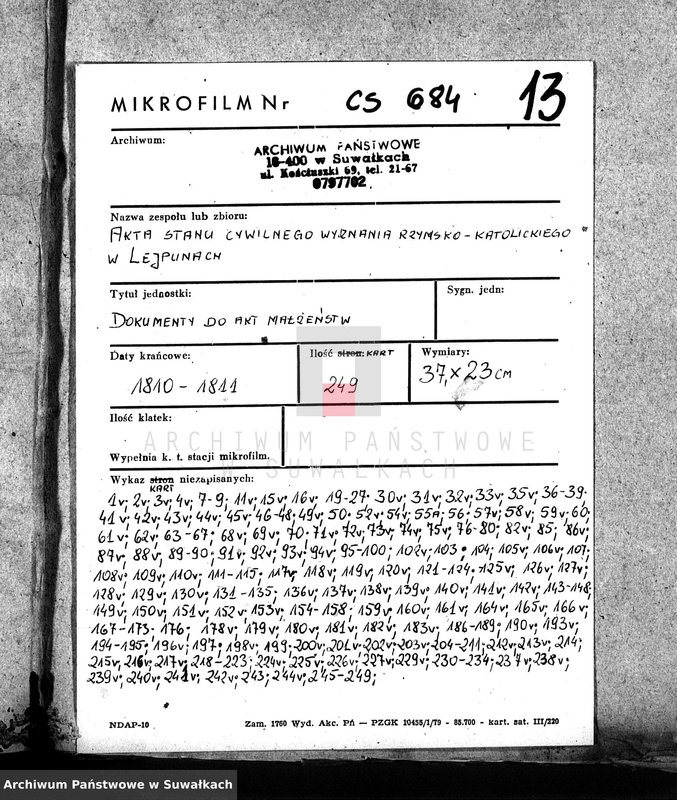 MIKROFILM Nr CS 684 13
Archiwum:
ARCHIWUM PAŃSTWOWE
16-400 w Suwałkach
ul. Kościuszki 69, tel. 21-67
0797702
Nazwa zespołu lub zbioru:
AKTA STANU CYWILNEGO WYZNANIA RZYMSKO-KATOLICKIEGO
W LEJPUNACH
Tytuł jednostki: Sygn. jedn:
DOKUMENTY DO AKT MAŁŻEŃSTW
Daty krańcowe: Ilość stron: KART Wymiary:
1810 - 1811 249 37,×23 cm
Ilość klatek:
ARCHIWUM PAŃSTWOWE
W SUWAŁKACH
Wypełnia k. t. stacji mikrofilm.
Wykaz stron niezapisanych:
KART
1v; 2v; 3v; 4v; 7-9; 11v; 15v; 16v; 19-27; 30v; 31v; 32v; 33v; 35v; 36-39;
41v; 42v; 43v; 44v; 45v; 46-48; 49v; 50; 52v; 54v; 55a; 56; 57v; 58v; 59v; 60;
61v; 62v; 63-67; 68v; 69v; 70; 71v; 72v; 73v; 74v; 75v; 76-80; 82v; 85; 86v;
87v; 88v; 89-90; 91v; 92v; 93v; 94v; 95-100; 102v; 103; 104; 105v; 106v; 107;
108v; 109v; 110v; 111-115; 117v; 118v; 119v; 120v; 121-124; 125v; 126v; 127v;
128v; 129v; 130v; 131-135; 136v; 137v; 138v; 139v; 140v; 141v; 142v; 143-148;
149v; 150v; 151v; 152v; 153v; 154-158; 159v; 160v; 161v; 164v; 165v; 166v;
167-173; 176; 178v; 179v; 180v; 181v; 182v; 183v; 186-189; 190v; 193v;
194-195; 196v; 197; 198v; 199; 200v; 201v; 202v; 203v; 204-211; 212v; 213v; 214;
215v; 216v; 217v; 218-223; 224v; 225v; 226v; 227v; 229v; 230-234; 237v; 238v;
239v; 240v; 241v; 242v; 243; 244v; 245-249;
NDAP-10 Zam. 1760 Wyd. Akc. Pń — PZGK 10455/1/79 - 85.700 - kart. sat. III/220
Archiwum Państwowe w Suwałkach